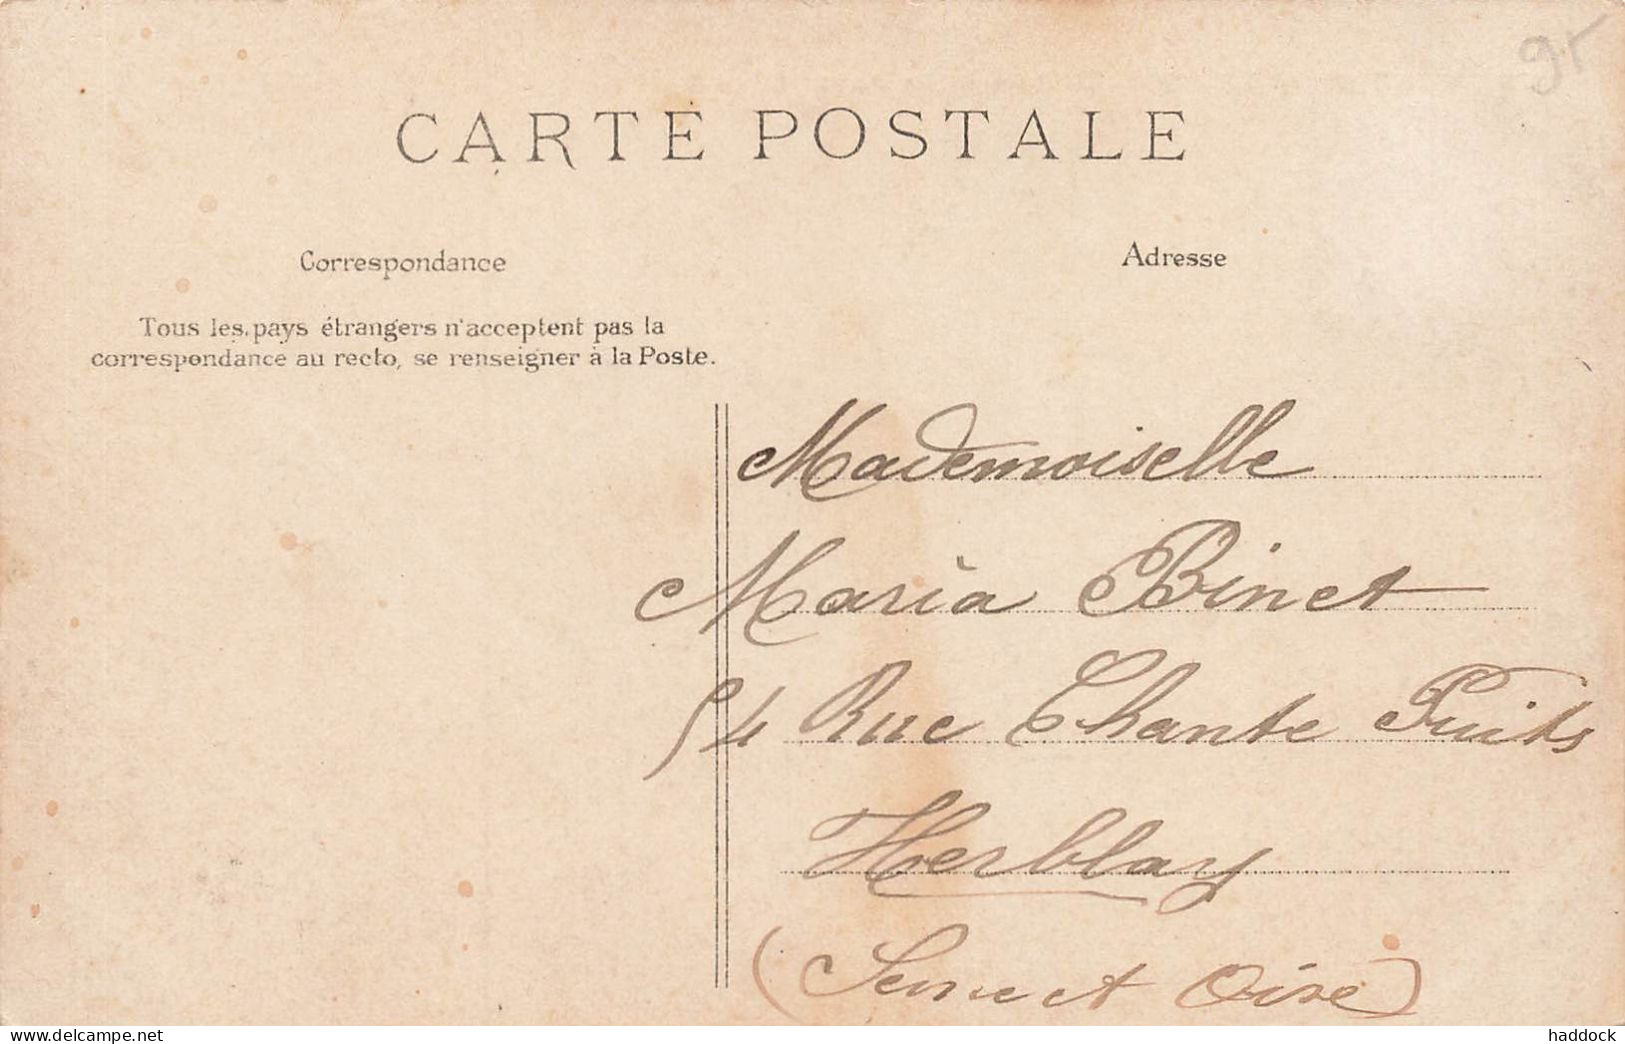 95
CARTE POSTALE
Correspondance
Adresse
Tous les pays étrangers n'acceptent pas la
correspondance au recto, se renseigner à la Poste.
Mademoiselle
Maria Binet
54 Rue Chante Puits
Herblay
(Seine et Oise)
www.delcampe.net
haddock